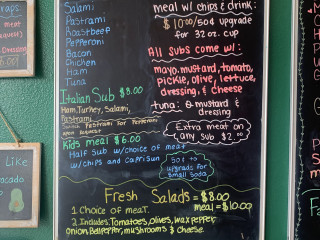 Salami
Pastrami
Roastbeef
Pepperoni
Bacon
Chicken
Ham
Tuna
Italian Sub $8.00
Ham, Turkey, Salami,
Pastrami
Pastrami for Pepperoni
upon request
Kids meal $6.00
Half Sub w/choice of meat
w/chips and caprisun
meal w/ chips & drink:
$10.00/50¢ upgrade
for 32 oz. cup
All subs come w/:
mayo, mustard, tomato,
pickle, olive, lettuce,
dressing, & cheese
tuna: mustard &
dressing
Extra meat on
any sub $2.00
50¢ to
upgrade for
small soda
Fresh Salads = $8.00
meal = $10.00
1. Choice of meat.
2. Includes: Tomatoes, olives, wax pepper,
onion, Bellpepper, mushrooms & cheese
meat
Dressing
Like